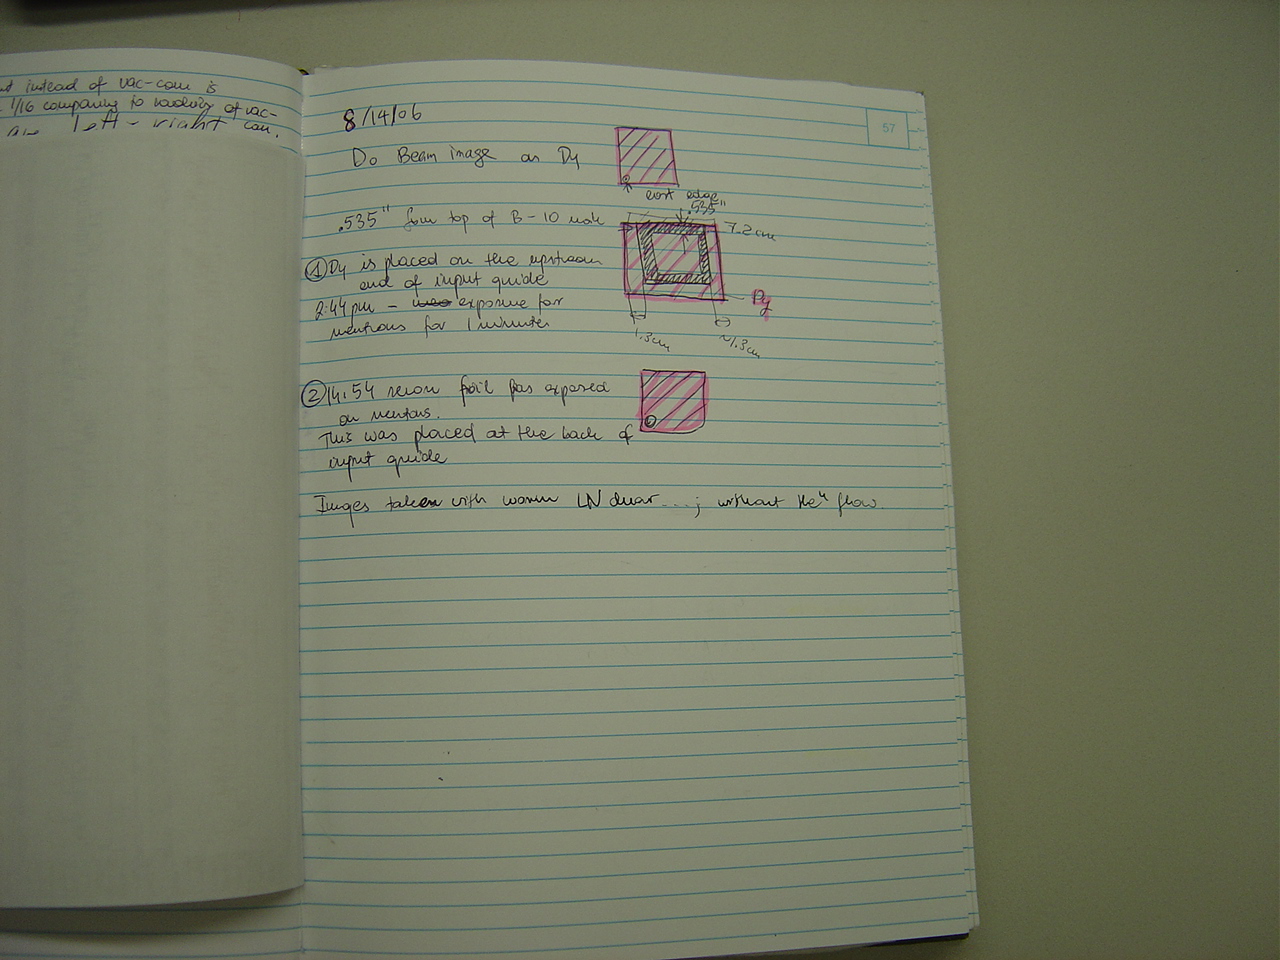 instead of vac-can is
1/16 comparing to of vac-
left - right can.
57
8/14/06
Do Beam image on Dy
east edge
.535"
.535" from top of B-10
7.2 cm
① Dy is placed on the upstream
end of input guide
2:44 pm - exposure for
neutrons for 1 minutes
Dy
1.3 cm
~1.3 cm
② 14:54 foil exposed
on neutrons.
This was placed at the back of
input guide
Images taken with warm LN dewar ...; without He⁴ flow.